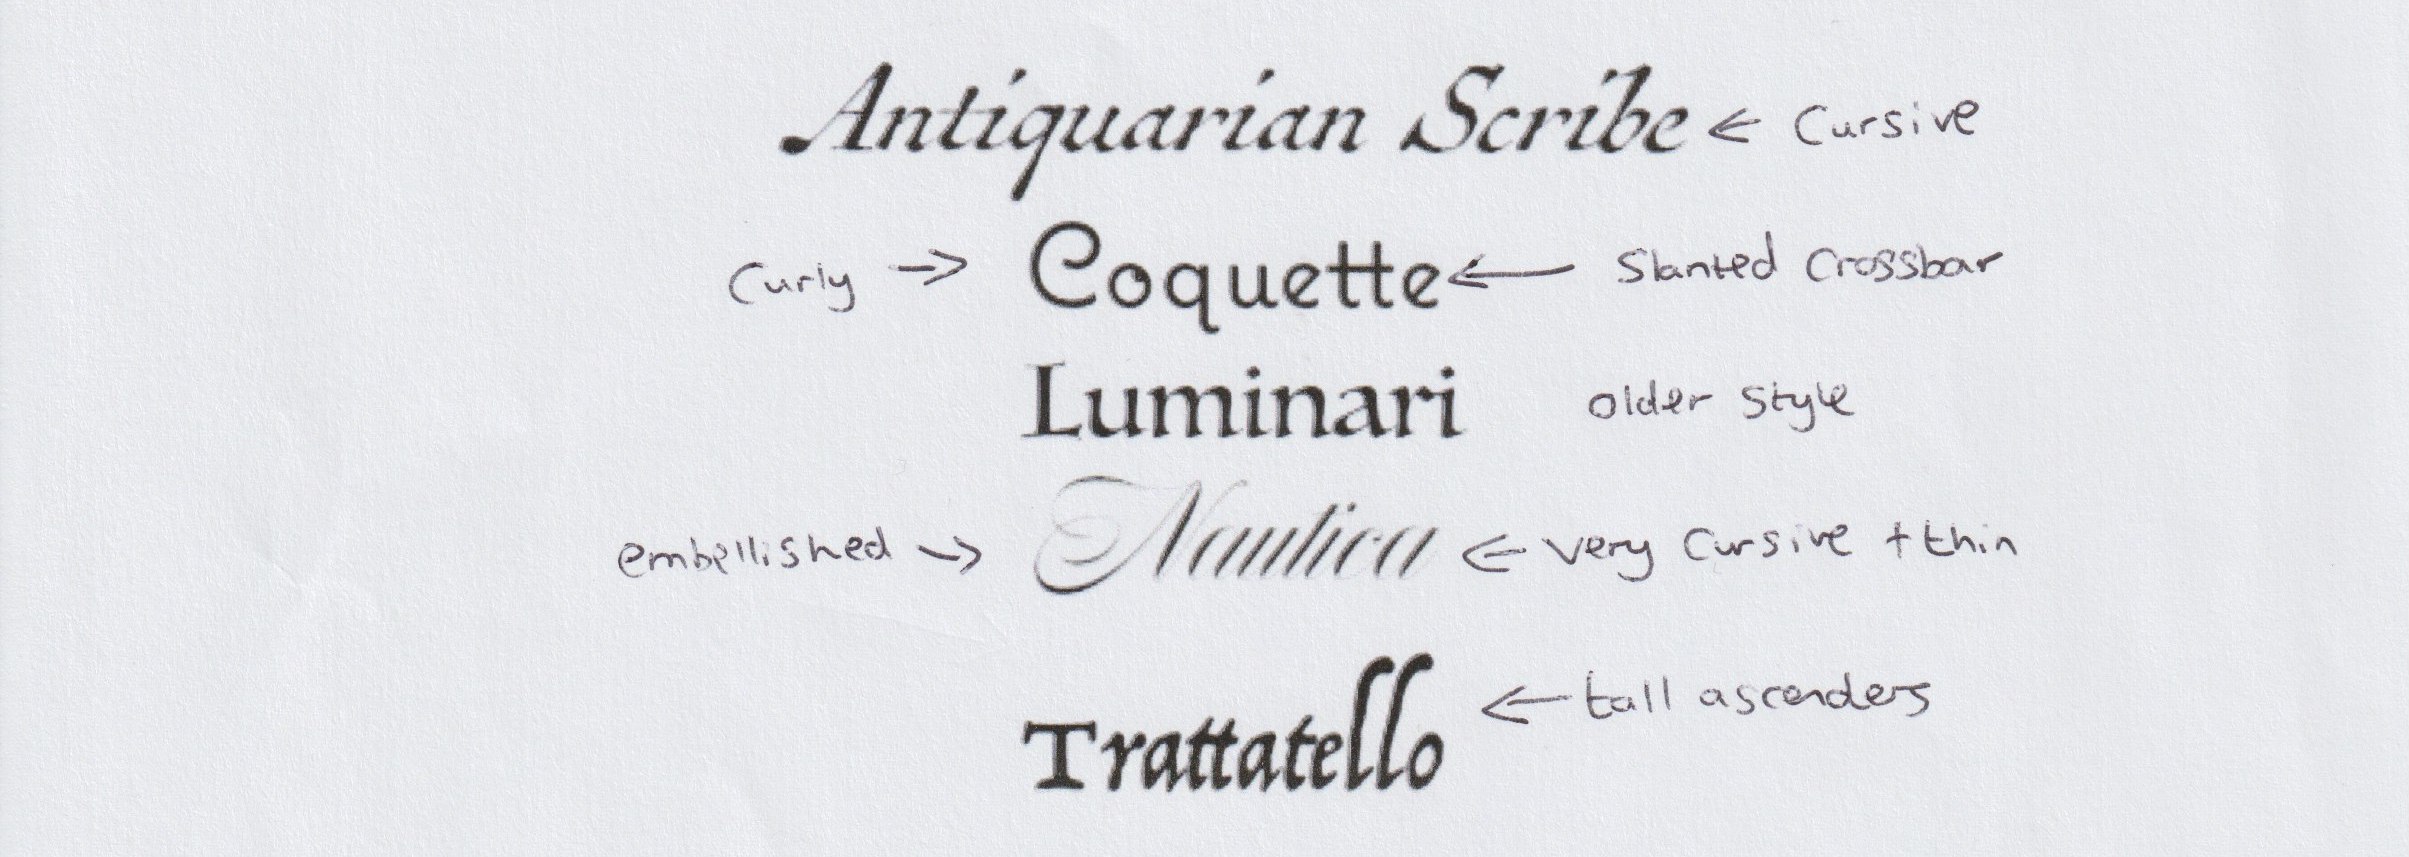 Antiquarian Scribe ← Cursive
Curly → Coquette ← Slanted Crossbar
Luminari older style
embellished → Nautica ← very cursive + thin
Trattatello ← tall ascenders